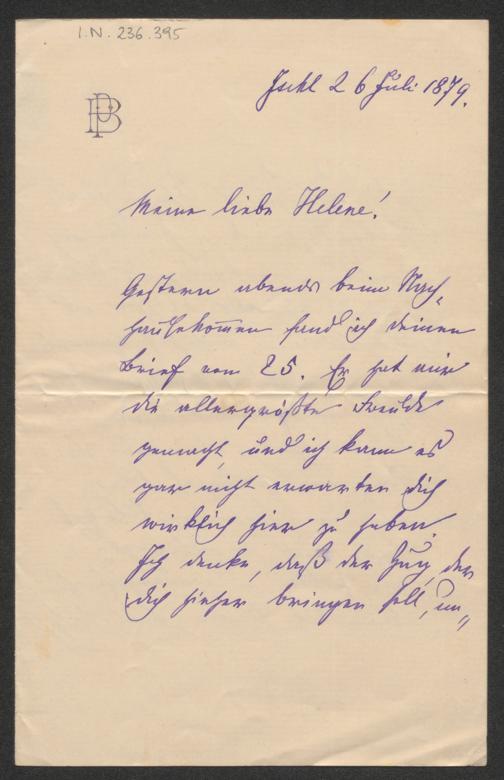 I.N. 236.395
PB
Ischl 26 Juli 1879.
Meine liebe Helene!
Gestern abends beim Nach„
hausekom̄en fand ich deinen
Brief vom 25. Er hat mir
die allergrößte Freude
gemacht, und ich kann es
gar nicht erwarten dich
wirklich hier zu haben.
Ich denke, daß der Zug, der
dich hieher bringen soll, um„